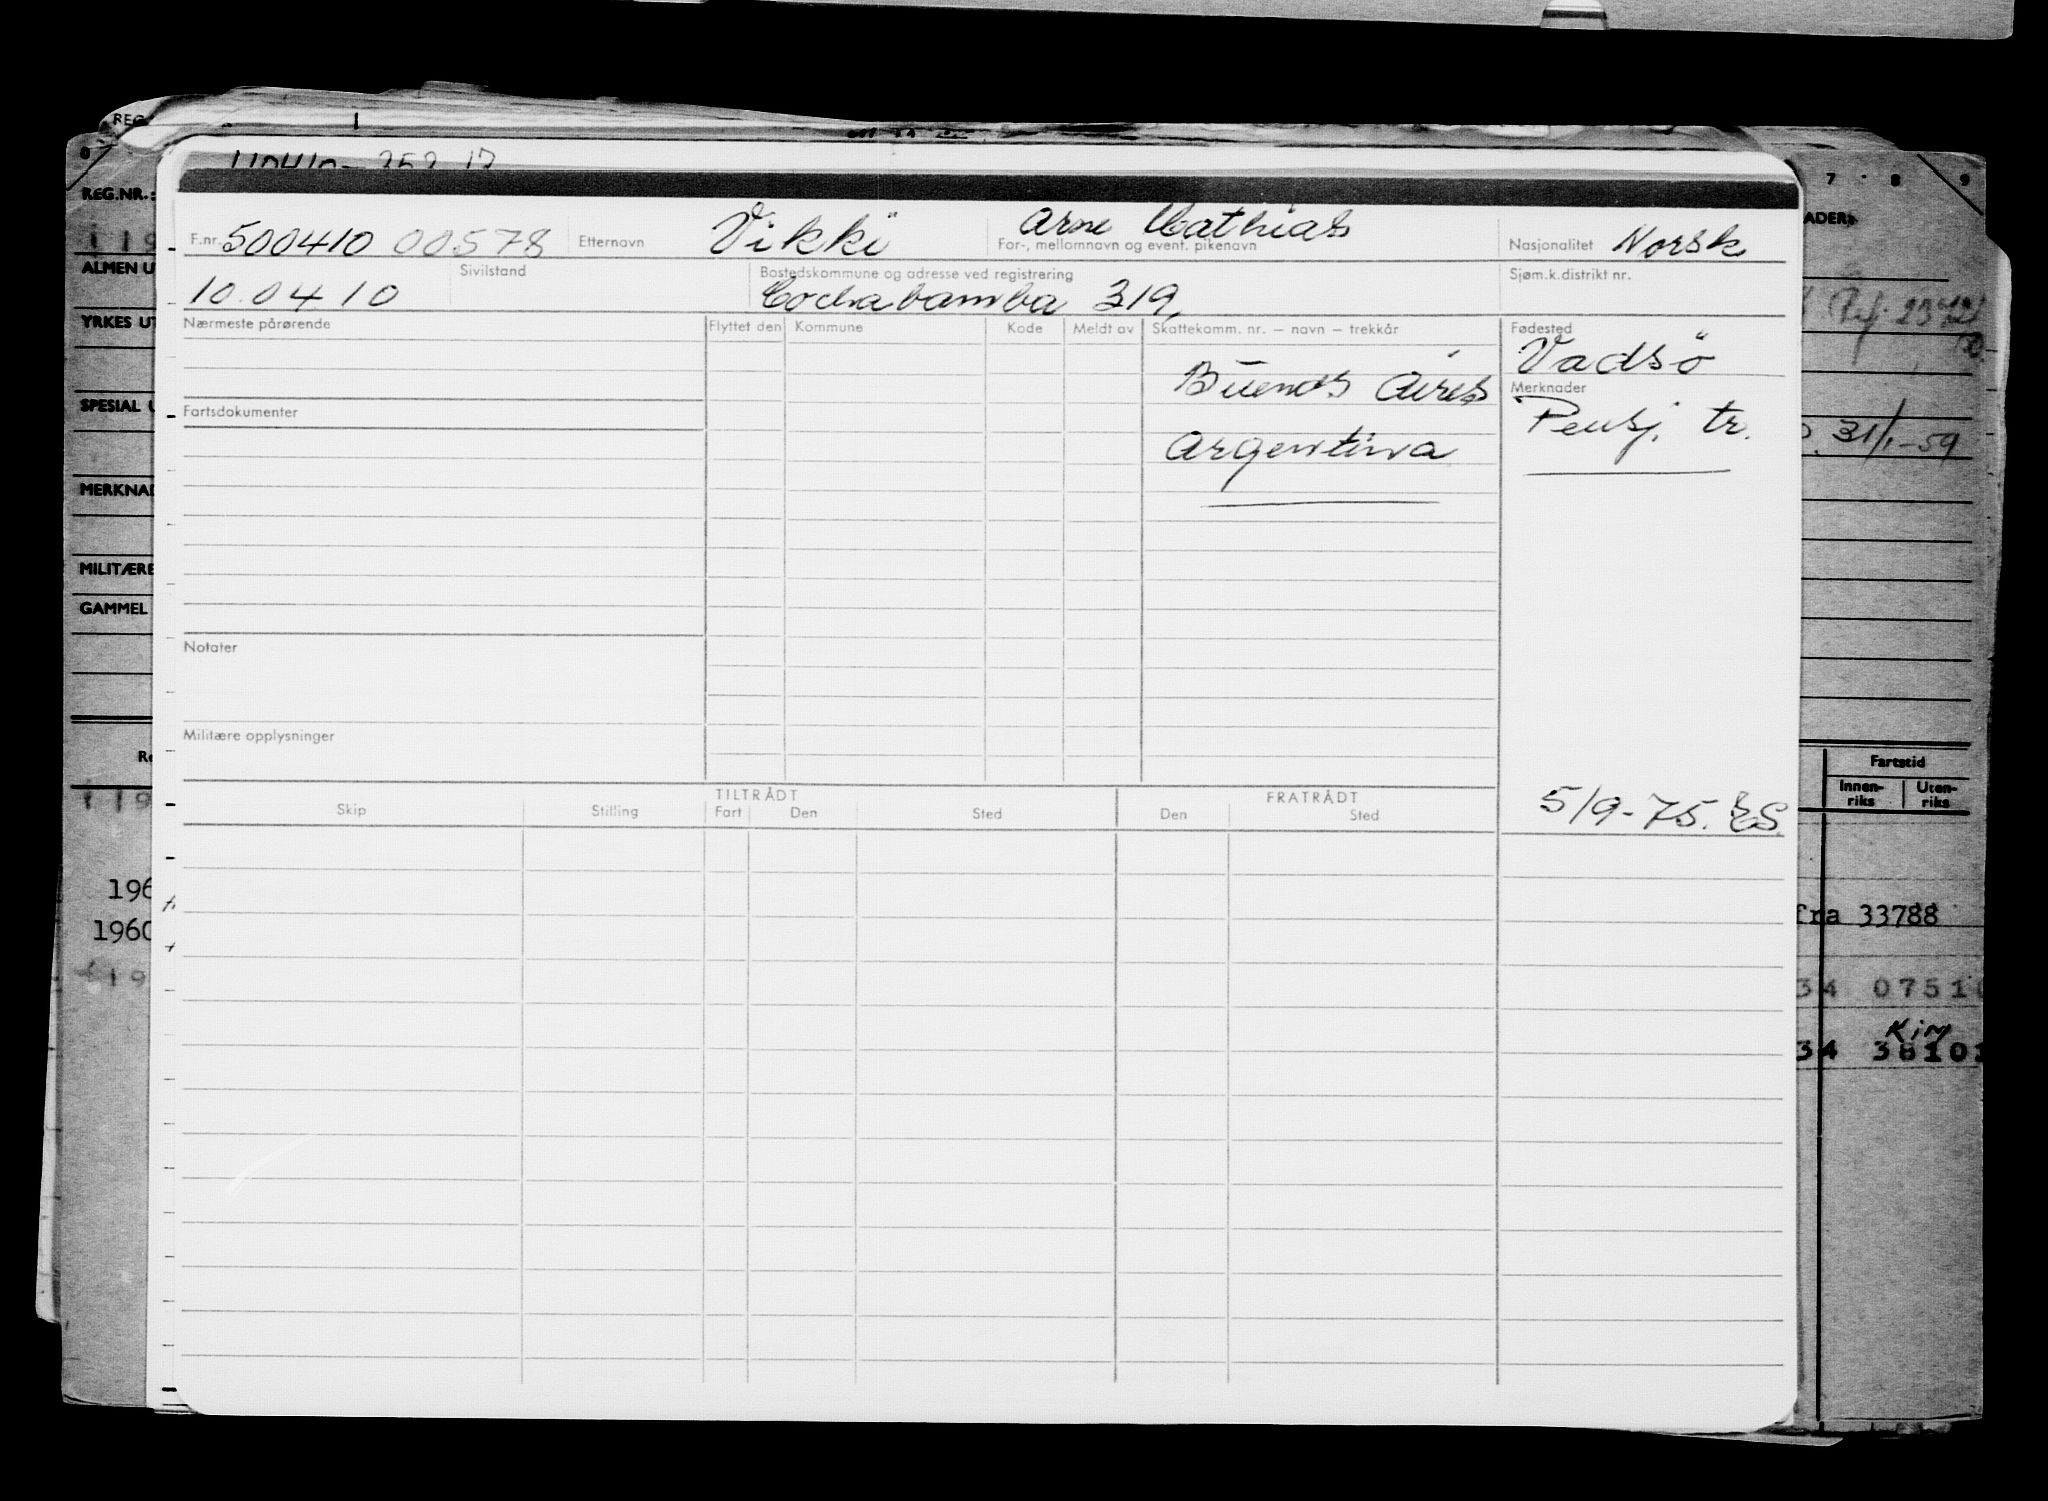 REG
REG.NR.:
ALMEN U
YRKES UT
SPESIAL U
MERKNAD
MILITÆRE
GAMMEL
196
1960
F.nr. 500410 00578 Etternavn Vikki Arne Mathias
For-, mellomnavn og event. pikenavn
Nasjonalitet Norsk
Sivilstand
Bostedskommune og adresse ved registrering
Sjøm.k.distrikt nr.
10.04 10 Cochabamba 319,
Nærmeste pårørende
Flyttet den Kommune Kode Meldt av Skattekomm. nr. – navn – trekkår
Buenos Aires
Argentina
Fødested
Vadsö
Merknader
Pensj. tr.
Fartsdokumenter
Notater
Militære opplysninger
5/9-75. ES
TILTRÅDT FRATRÅDT
Skip Stilling Fart Den Sted Den Sted
7 8 9
31/1-59
Fartstid
Innen-
riks
Uten-
riks
fra 33788
34 0751
Kim
34 38101